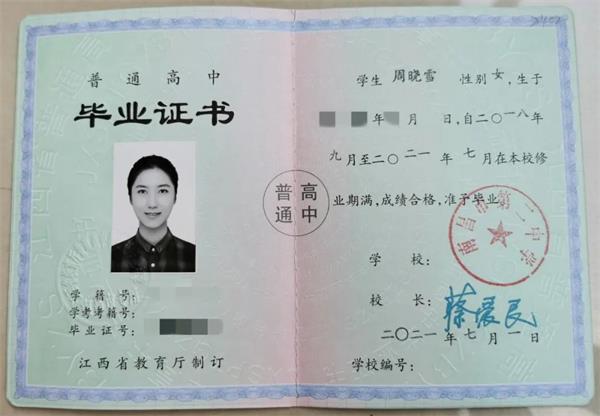 普通高中
毕业证书
学籍号：
学考考籍号：
毕业证号：
江西省教育厅制订
普通
高中
学生 周晓雪 性别 女，生于
年 月 日，自二〇一八年
九月至二〇二一年 七月在本校修
业期满，成绩合格，准予毕业
南昌市第二中学
学 校：
校 长： 蔡爱民
二〇二一年 七月一日
学校编号：